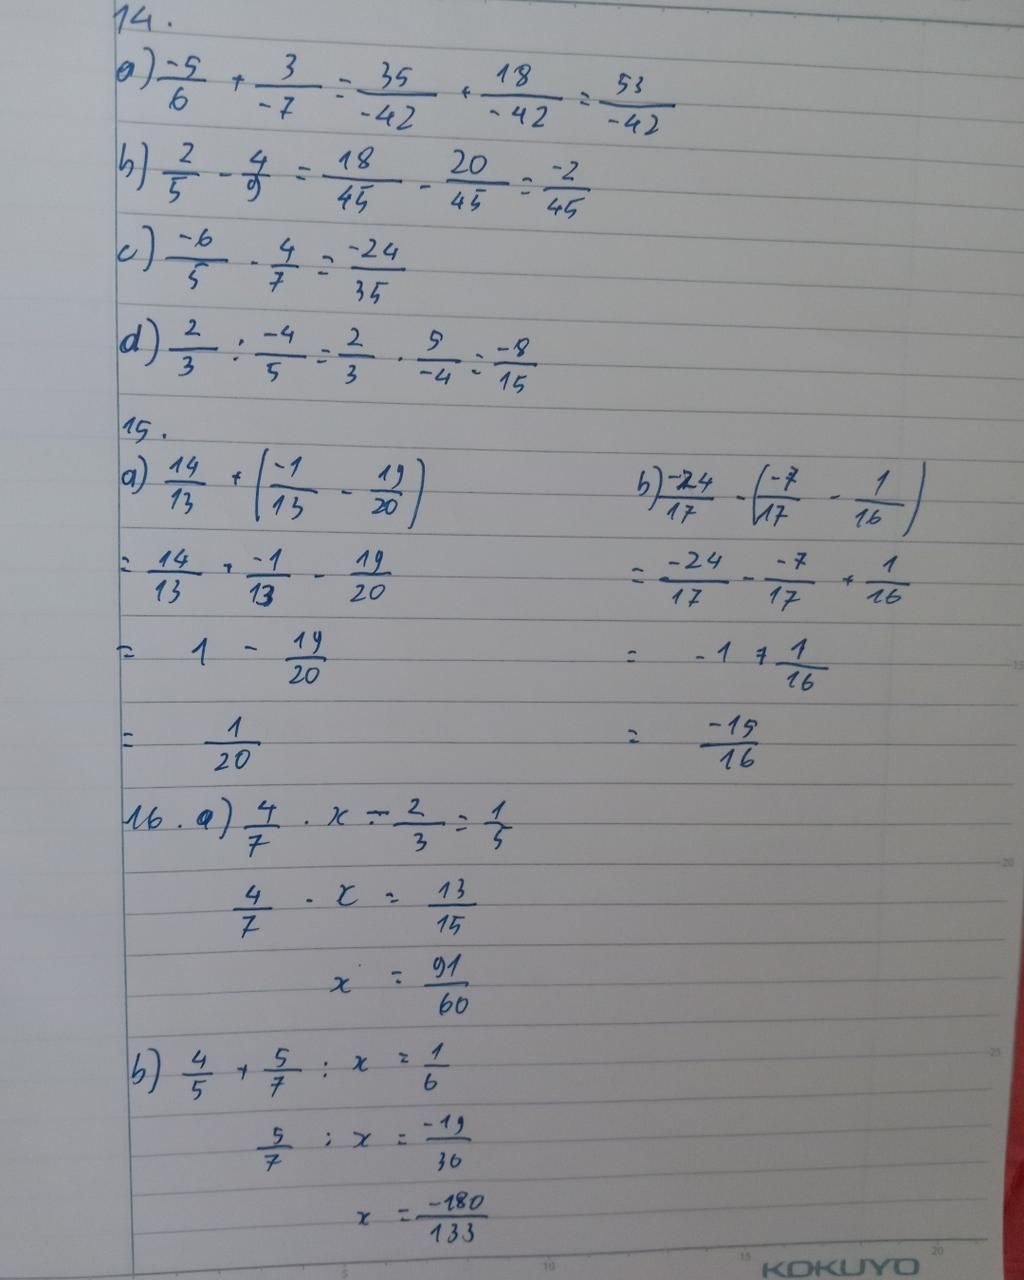 14.
a) -5/6 + 3/-7 = 35/-42 + 18/-42 = 53/-42
b) 2/5 - 4/9 = 18/45 - 20/45 = -2/45
c) -6/5 · 4/7 = -24/35
d) 2/3 : -4/5 = 2/3 · 5/-4 = -8/15
15.
a) 14/13 + (-1/13 - 19/20)
= 14/13 + -1/13 - 19/20
= 1 - 19/20
= 1/20
b) -24/17 - (-7/17 - 1/16)
= -24/17 - -7/17 + 1/16
= -1 + 1/16
= -15/16
16. a) 4/7 · x - 2/3 = 1/5
4/7 · x = 13/15
x = 91/60
b) 4/5 + 5/7 : x = 1/6
5/7 : x = -19/30
x = -180/133
15
20
25
5 10 15 20
KOKUYO